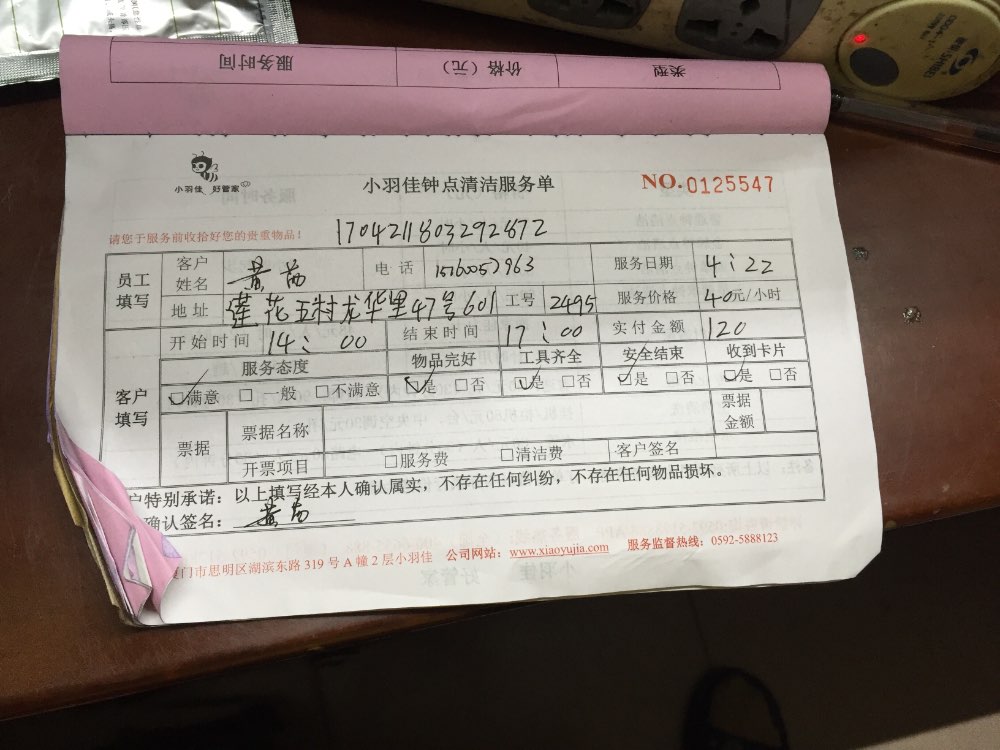 服务时间 价格（元） 类型
小羽佳 好管家
小羽佳钟点清洁服务单
NO.0125547
请您于服务前收拾好您的贵重物品！
1704211803292872
员工填写 客户姓名 黄茜 电话 15160057963 服务日期 4：22
地址 莲花五村龙华里47号601 工号 2495 服务价格 40元/小时
开始时间 14：00 结束时间 17：00 实付金额 120
客户填写 服务态度 物品完好 工具齐全 安全结束 收到卡片
☑满意 □一般 □不满意 ☑是 □否 ☑是 □否 ☑是 □否 ☑是 □否
票据 票据名称 票据金额
开票项目 □服务费 □清洁费 客户签名
户特别承诺：以上填写经本人确认属实，不存在任何纠纷，不存在任何物品损坏。
确认签名：黄茜
厦门市思明区湖滨东路319号A幢2层小羽佳 公司网站：www.xiaoyujia.com 服务监督热线：0592-5888123